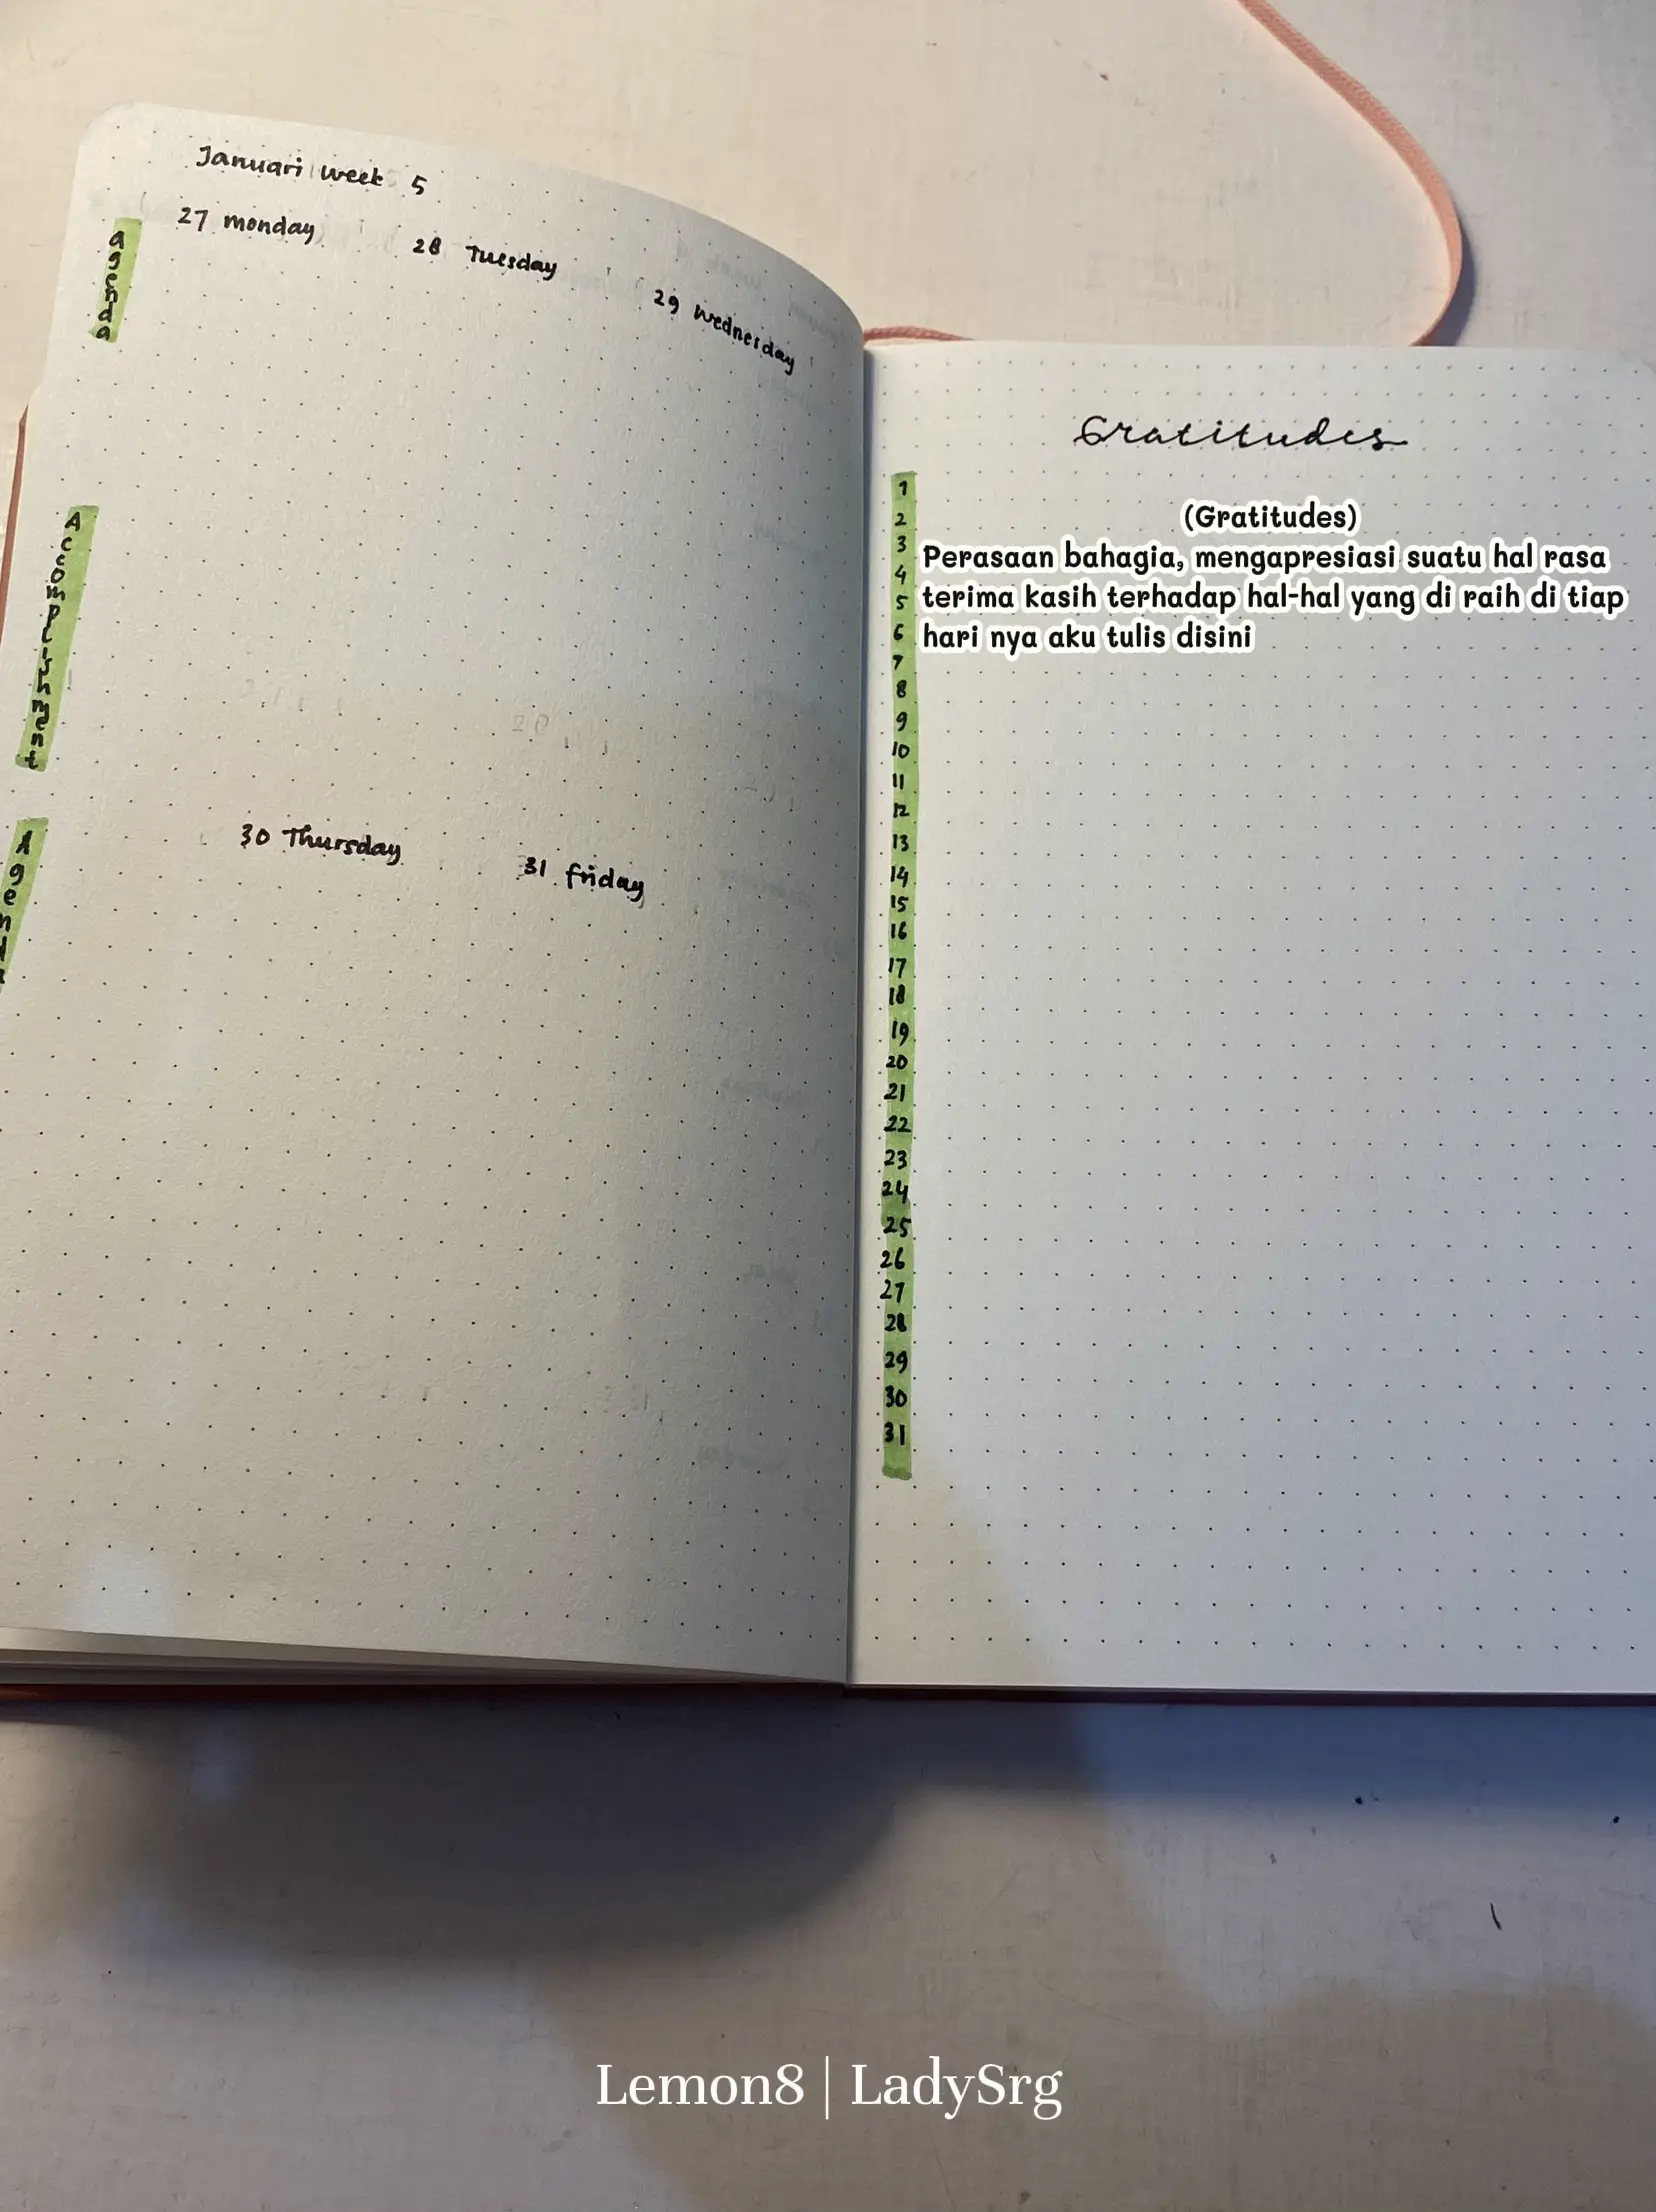 Januari week 5
27 monday
28 Tuesday
29 wednesday
agenda
Accomplishment
30 Thursday
31 friday
Agenda
Gratitudes
1
2
3
4
5
6
7
8
9
10
11
12
13
14
15
16
17
18
19
20
21
22
23
24
25
26
27
28
29
30
31
(Gratitudes)
Perasaan bahagia, mengapresiasi suatu hal rasa
terima kasih terhadap hal-hal yang di raih di tiap
hari nya aku tulis disini
Lemon8 | LadySrg